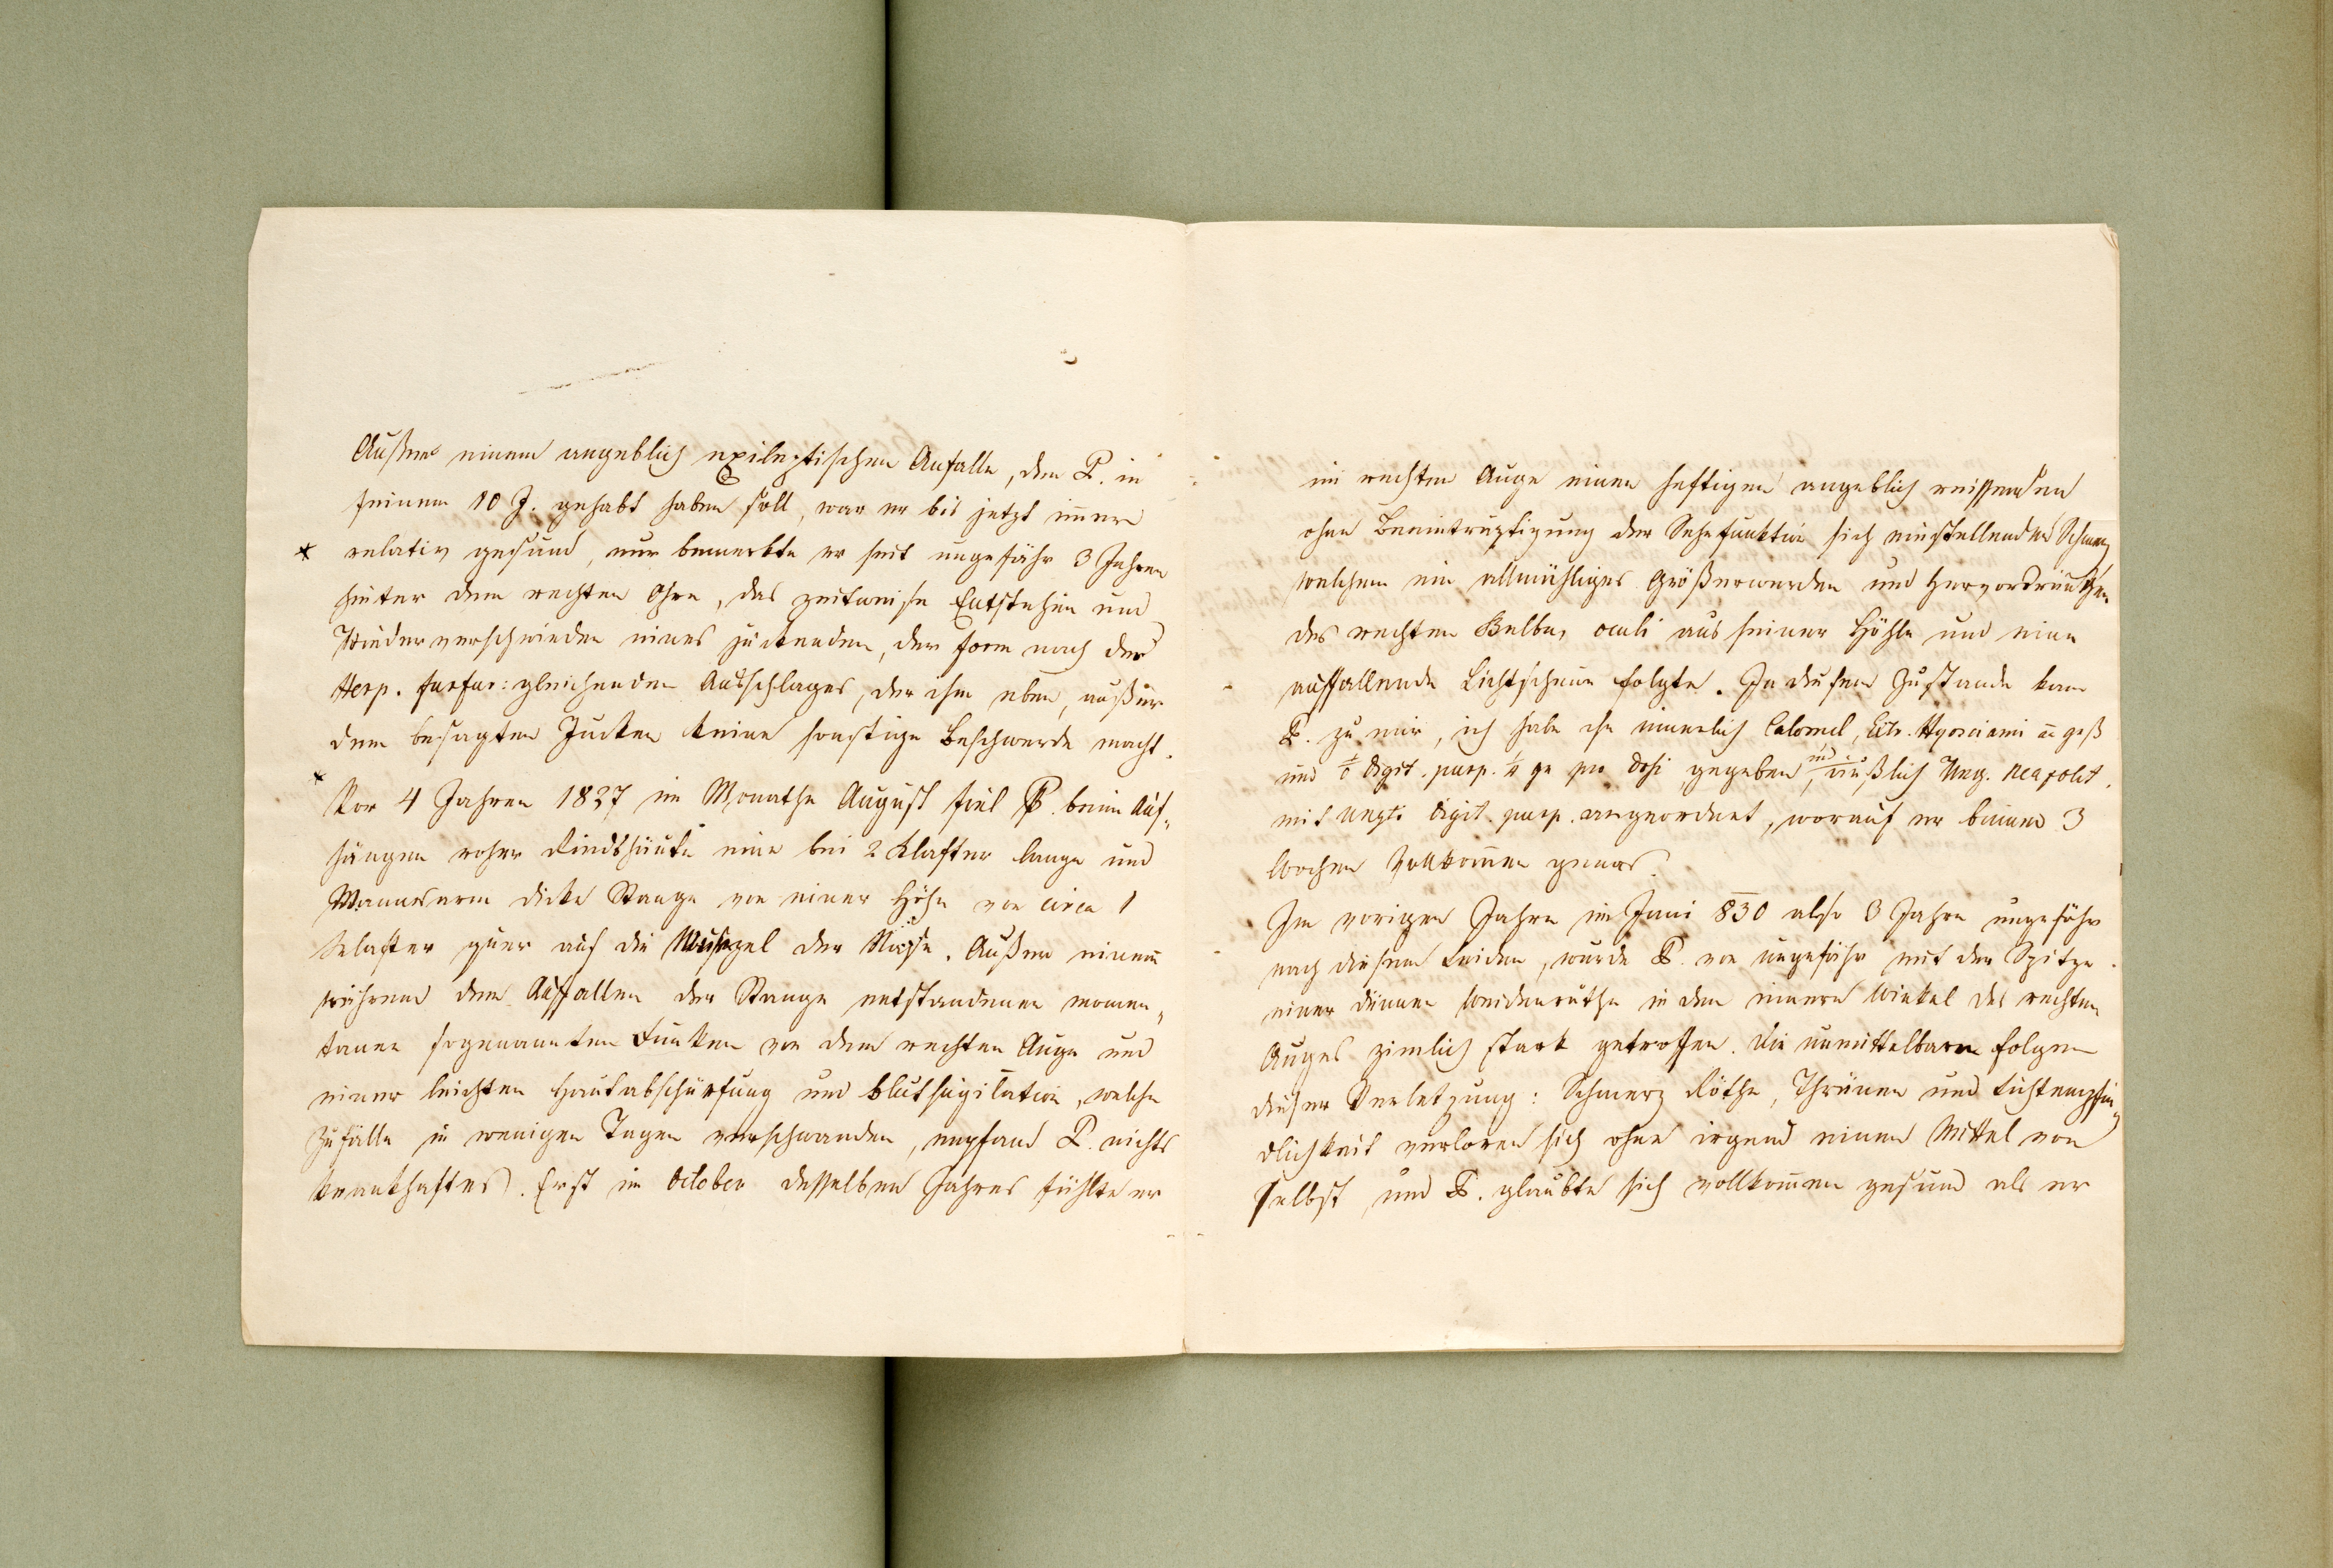 Außer einem angeblich epileptischen Anfalle, den P. in
seinem 10 J. gehabt haben soll, war er bis jetzt im̅er
* relativ gesund, nur bemerkte er seit ungefähr 3 Jahren
hinter dem rechten Ohre, das zeitweise Entstehen und
Wiederverschwinden eines juckenden, der Form nach der
Herp. furfur: gleichenden Ausschlages, der ihm eben, außer
dem besagten Jucken keine sonstige Beschwerde macht.
* Vor 4 Jahren 1827 im Monathe August fiel P. beim Auf-
hängen roher Rindshäute eine bei 2 Klafter lange und
Mannsarm dicke Stange von einer Höhe von circa 1
Klafter quer auf die Wurzel der Nase. Außer einem
während dem Auffallen der Stange entstandenen momen-
tanen sogenannten Funken vor dem rechten Auge und
einer leichten Hautabschürfung und Blutsugilation, welche
Zufälle in wenigen Tagen verschwanden, empfand P. nichts
krankhaftes. Erst im October desselben Jahres fühlte er
im rechten Auge einen heftigen angeblich reissenden
ohne Beeinträgtigung der Sehefunktion sich einstellenden Schmerz
welchem ein allmähliges Größerwerden und Hervordrängen
des rechten Bulbus oculi aus seiner Höhle und eine
auffallende Lichtscheue folgte. In diesem Zustande kam
P. zu mir, ich habe ihm innerlich Calomel, Extr. Hyosciami
und digit. purp. ¼ gr pro Dosi gegeben, und äußlich Ung. neapolit.
mit digit. purp. angeordnet, worauf er binnen 3
Wochen vollkom̅en genas.
Im vorigen Jahre im Juni 830 also 3 Jahre ungefähr
nach diesem Leiden, wurde P. von ungefähr mit der Spitze
einer dünnen Weidenruthe in dem innern Winkel des rechten
Auges zimlich stark getroffen. Die unmittelbaren Folgen
dieser Verletzung: Schmerz Röthe, Thränen und Lichtempfin-
dlichkeit verloren sich ohne irgend einem Mittel von
selbst, und P. glaubte sich vollkom̅en gesund als er